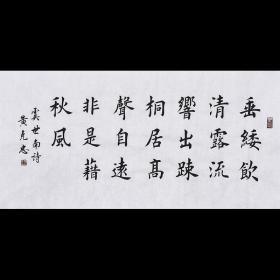 垂緌飲
清露流
響出踈
桐居高
聲自遠
非是藉
秋風
虞世南詩
黄克忠